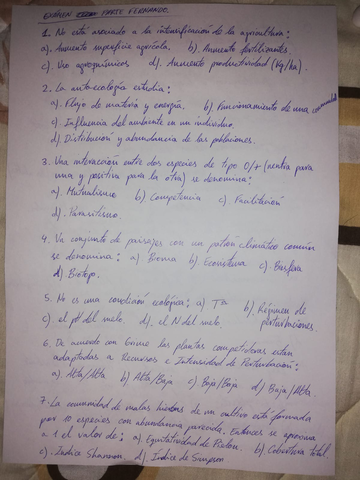 EXAMEN PARTE FERNANDO.
1. No está asociado a la intensificación de la agricultura:
a). Aumento superficie agrícola. b). Aumento fertilizantes.
c). Uso agroquímicos d). Aumento productividad (Kg/ha).
2. La autoecología estudia:
a). Flujo de materia y energía. b) Funcionamiento de una comunidad
c). Influencia del ambiente en un individuo.
d). Distribución y abundancia de las poblaciones.
3. Una interacción entre dos especies de tipo 0/+ (neutra para
una y positiva para la otra) se denomina:
a). Mutualismo b) Competencia c). Facilitación
d). Parasitismo.
4. Un conjunto de paisajes con un patrón climático común
se denomina: a) Bioma b). Ecosistema c). Biosfera
d). Biotopo.
5. No es una condición ecológica: a) Tª b). Régimen de
perturbaciones.
c). el pH del suelo. d). el N del suelo
6. De acuerdo con Grime las plantas competidoras están
adaptadas a Recursos e Intensidad de Perturbación:
a). Alta/Alta b) Alta/Baja c) Baja/Baja d) Baja/Alta.
7. La comunidad de malas hierbas de un cultivo está formada
por 10 especies con abundancia parecida. Entonces se aproxima
a 1 el valor de: a) Equitatividad de Pielou. b). Cobertura total.
c). Indice Shannon. d). Indice de Simpson.